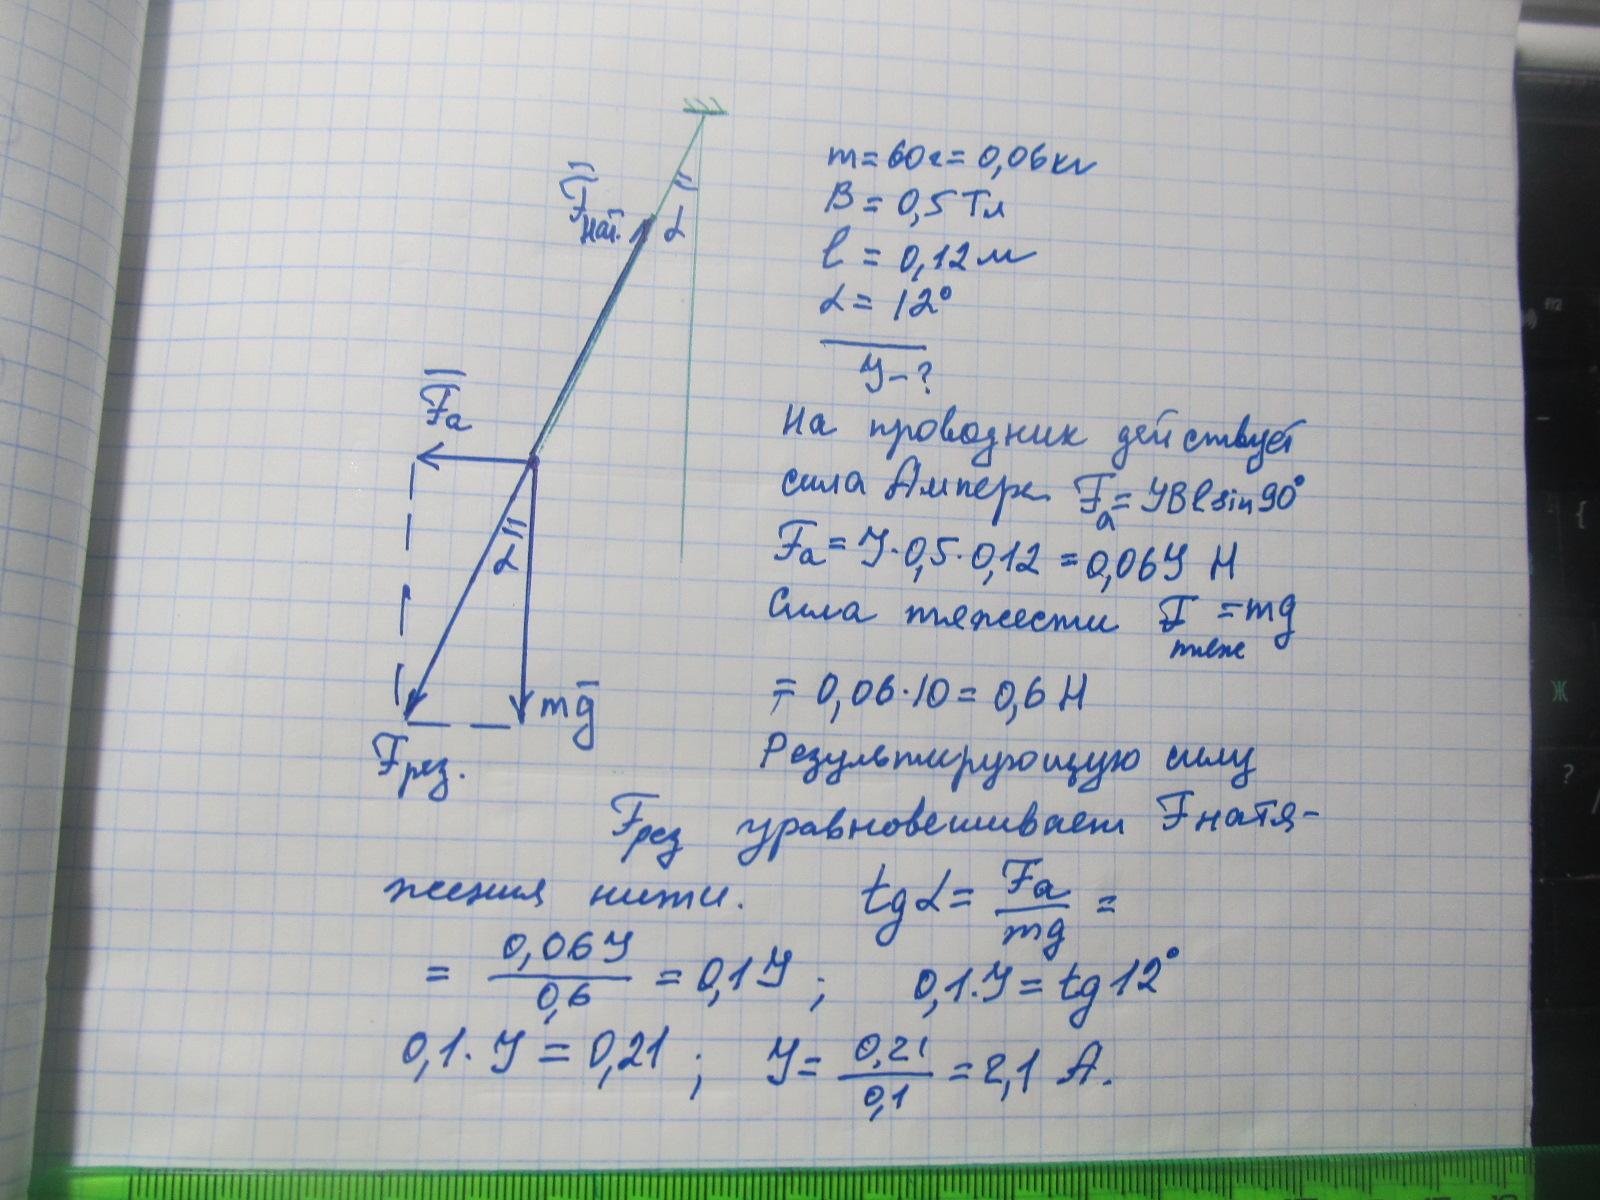 F̄нат.
α
m = 60г = 0,06 кг
B = 0,5 Тл
l = 0,12 м
α = 12°
У – ?
F̄а
α
mḡ
Fрез.
На проводник действует
сила Ампера Fа = УBl sin 90°
Fа = У·0,5·0,12 = 0,06У Н
Сила тяжести Fтяж = mg
= 0,06·10 = 0,6 Н
Результирующую силу
Fрез уравновешивает Fнатя-
жения нити. tgα = Fа/mg =
= 0,06У/0,6 = 0,1У ; 0,1·У = tg12°
0,1·У = 0,21 ; У = 0,21/0,1 = 2,1 А.
F12
{
Ж
?
/